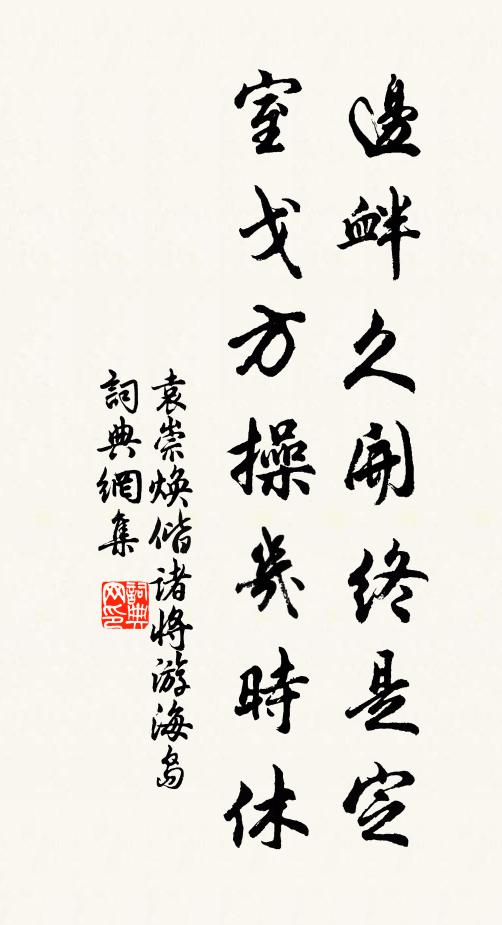 邊衅久開終是定
室戈方操幾時休
袁崇煥偕諸將游海島
詞典網集
詞典网印